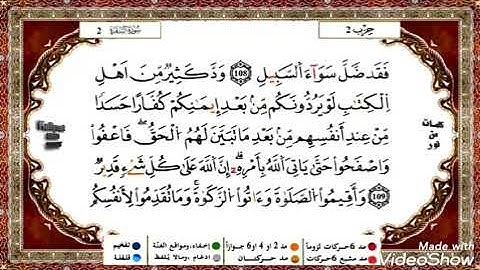 سورة البقرة 2
حزب 2
فَقَد ضَّلَّ سَوَآءَ اَ۬لسَّبِيلِ 108 وَدَّ كَثِيرٞ مِّنَ اَهْلِ
اِ۬لْكِتَٰبِ لَوْ يَرُدُّونَكُم مِّنۢ بَعْدِ إِيمَٰنِكُمْ كُفَّاراً حَسَداٗ
مِّنْ عِندِ أَنفُسِهِم مِّنۢ بَعْدِ مَا تَبَيَّنَ لَهُمُ اُ۬لْحَقُّ فَاعْفُواْ
وَاصْفَحُواْ حَتَّىٰ يَاتِيَ اَ۬للَّهُ بِأَمْرِهِۦٓ إِنَّ اَ۬للَّهَ عَلَىٰ كُلِّ شَےْءٖ قَدِيرٞ
109 وَأَقِيمُواْ اُ۬لصَّلَوٰةَ وَءَاتُواْ اُ۬لزَّكَوٰةَ وَمَا تُقَدِّمُواْ لِأَنفُسِكُم
كلمات
من
نور
مد 6 حركات لزوماً
مد 2 او 4 او 6 جوازاً
إخفاء، ومواقع الغنة
تفخيم
مد مشبع 6 حركات
مد حركتان
ادغام، ومالا يلفظ
قلقلة
Made with
VideoShow